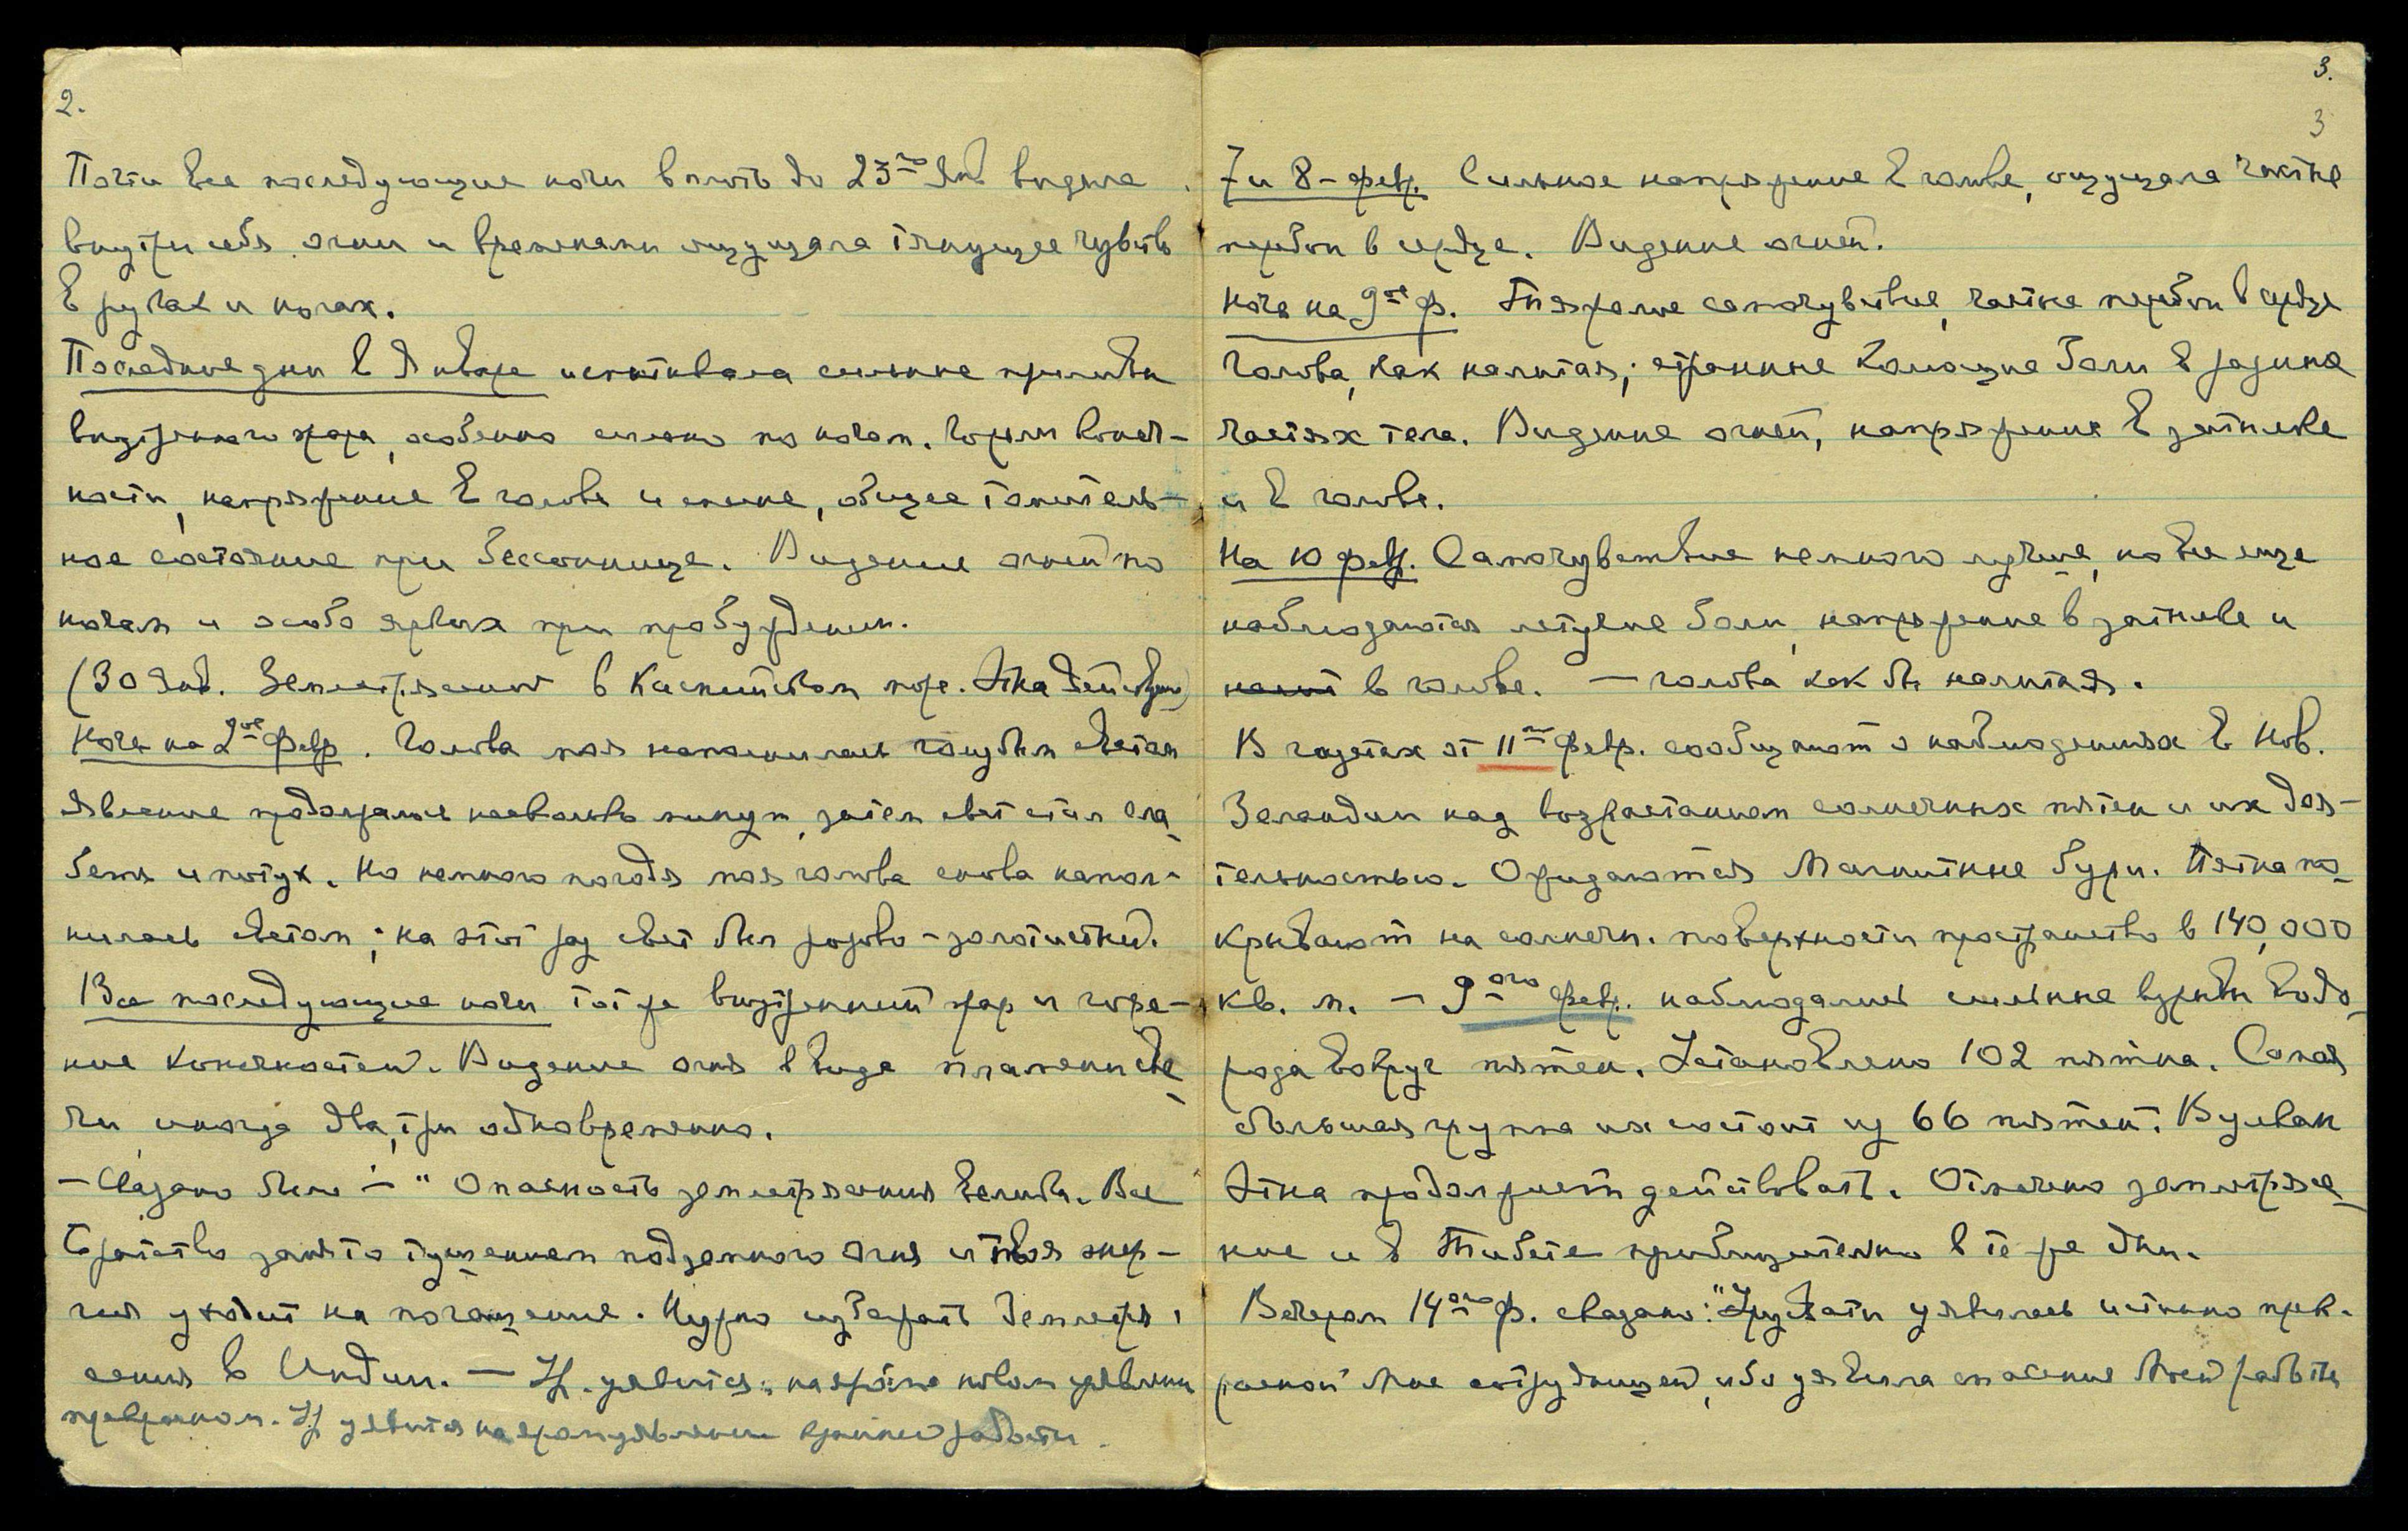 2.
Почти все последующие ночи вплоть до 23го Янв видела
внутри себя огни и временами ощущала тянущее чувство
в руках и ногах.
Последние дни в Январе испытывала сильные приливы
внутреннего жара, особенно сильно по ночам. Горели конеч-
ности, напряжение в голове и спине, общее томитель-
ное состояние при бессоннице. Видение огней по
ночам и особо ярких при пробуждении.
(30 Янв. Землетрясение в Каспийском море. Этна действует)
Ночь на 2ое Февр. Голова моя наполнилась голубым светом
Явление продолжалось несколько минут, затем свет стал сла-
беть и потух. Но немного погодя моя голова снова напол-
нилась светом; на этот раз свет был розово-золотистый.
Все последующие ночи тот же внутренний жар и горе-
ние конечностей. Видение огня в виде пламени све-
чи иногда два, три одновременно.
– Сказано было – "Опасность землетрясения велика. Все
Братство занято тушением подземного огня и твоя энер-
гия уходит на погашение. Нужно избежать землетря-
сения в Индии. – Ур. явится на
Ур явится на работы.
3.
3
7 и 8 – февр. Сильное напряжение в голове, ощущала частые
перебои в сердце. Видение огней.
Ночь на 9ое ф. Тяжелое самочувствие, частые перебои в сердце
голова, как налитая; странные колющие боли в разных
частях тела. Видение огней, напряжение в затылке
и в голове.
На 10 февр. Самочувствие немного лучше, но все еще
наблюдаются летучие боли, напряжение в затылке и
в голове. – голова как бы налитая.
В газетах от 11го Февр. сообщают о наблюдениях в Нов.
Зеландии над возрастанием солнечных пятен и их дея-
тельностью. Ожидаются Магнитные бури. Пятна по-
крывают на солнечн. поверхности пространство в 140,000
кв. м. – 9ого февр. наблюдались сильные взрывы водо-
рода вокруг пятен. Установлено 102 пятна. Самая
большая группа их состоит из 66 пятен. Вулкан
Этна продолжает действовать. Отмечено землетрясе-
ние и в Тибете приблизительно в те же дни.
Вечером 14ого ф. сказано: "Урусвати уявилась истинно прек-
расной Мне сотрудницей, ибо уявила спасение Моей работы